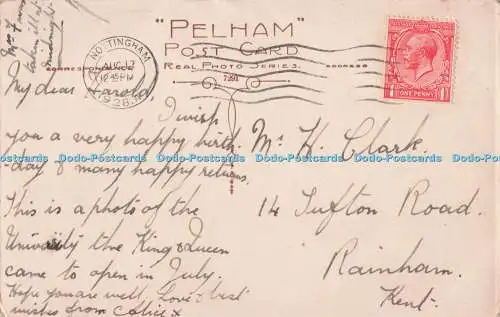 "PELHAM"
POST CARD
REAL PHOTO SERIES.
CORRESPONDENCE
NOTTINGHAM
AUG 17
12.45 PM
1928
ONE PENNY
My dear Harold
I wish
you a very happy birth
-day & many happy returns.
This is a photo of the
University the King & Queen
came to open in July.
Hope you are well, love & best
wishes from
Mr H. Clark.
14 Tufton Road.
Rainham.
Kent.
Dodo-Postcards Dodo-Postcards Dodo-Postcards Dodo-Postcards Dodo-Postcards